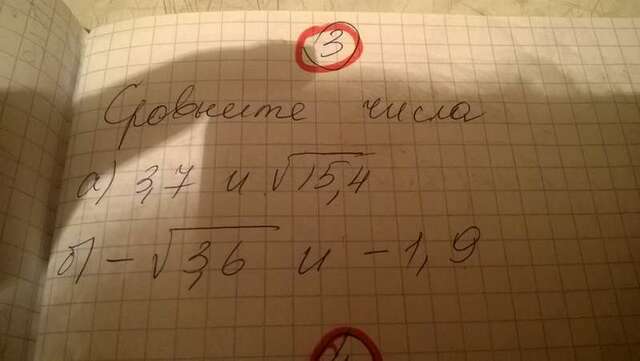 3
Сравните числа
а) 3,7 и √15,4
б) -√3,6 и -1,9